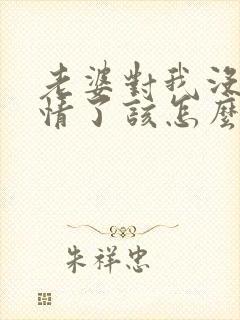 老婆對我沒
情了該怎麼
朱祥忠